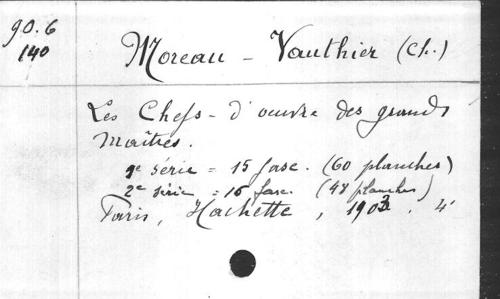 90.6
140
Moreau - Vauthier (Ch.)
Les Chefs-d'œuvre des grands
Maîtres.
1e série = 15 fasc. (60 planches)
2e série = 16 fasc. (48 planches)
Paris, Hachette, 1903. 4°